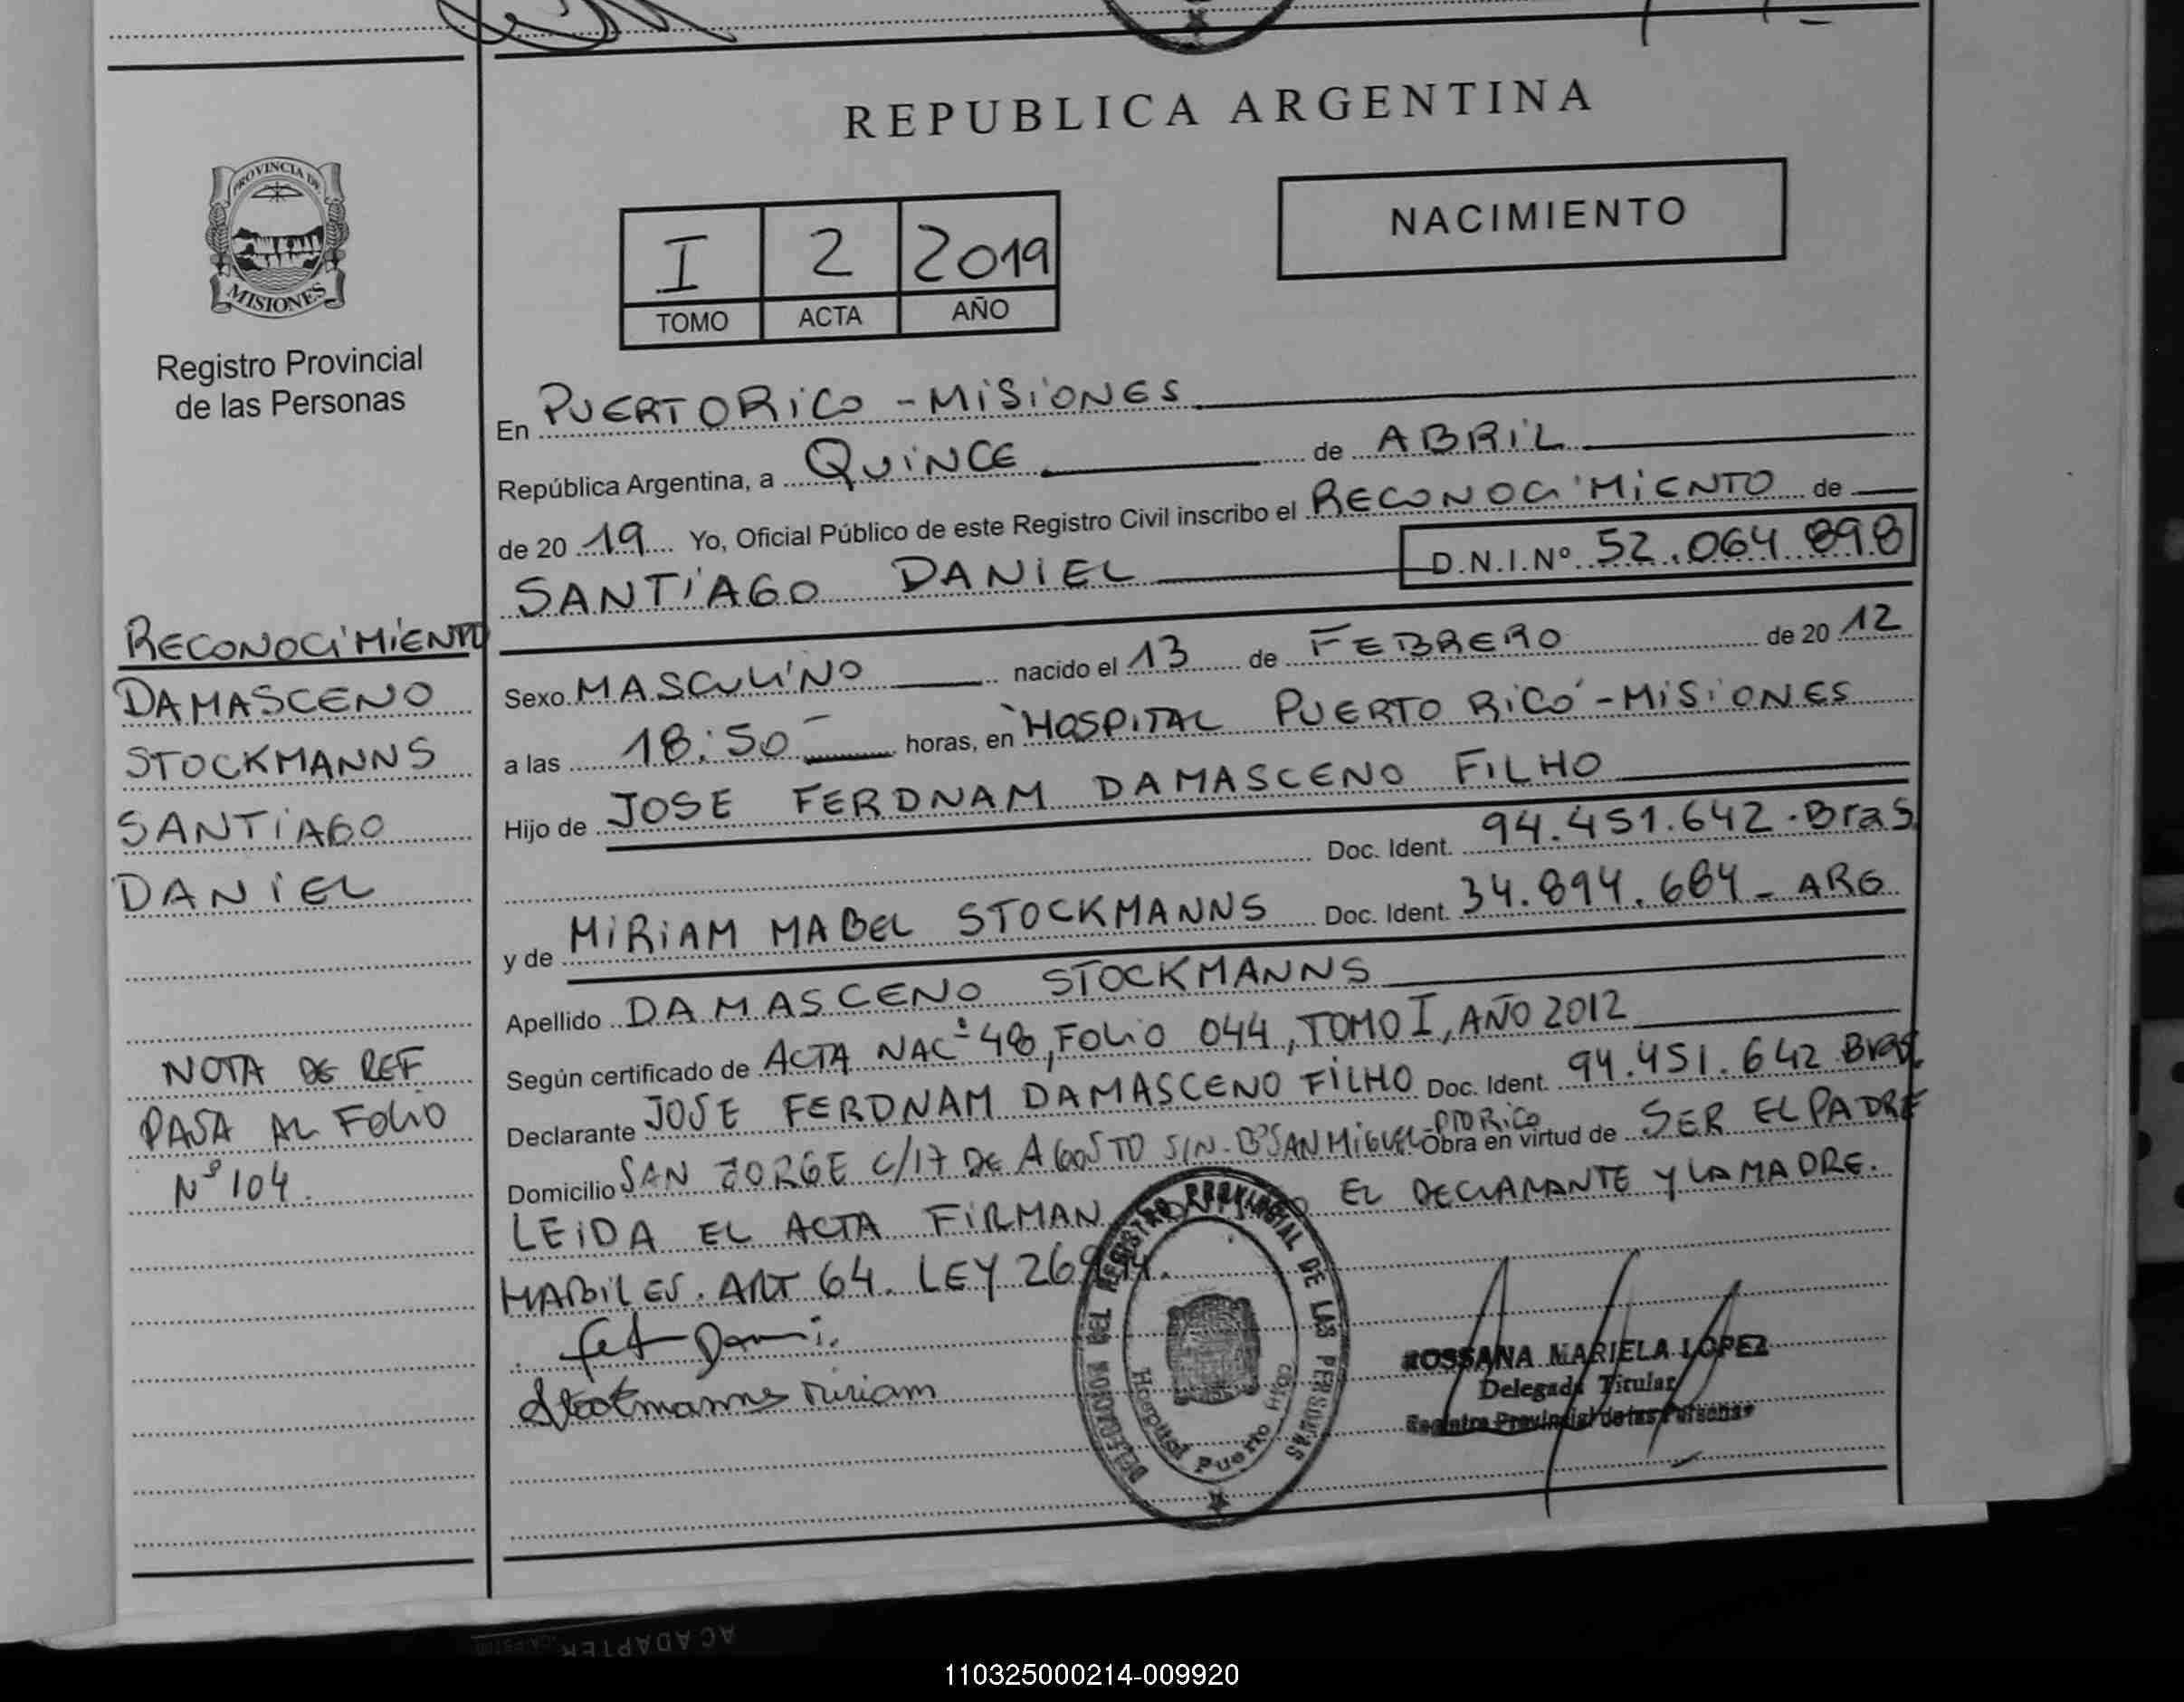 REPUBLICA ARGENTINA
NACIMIENTO
I 2 2019
TOMO ACTA AÑO
PROVINCIA DE
MISIONES
Registro Provincial
de las Personas
RECONOCIMIENTO
DAMASCENO
STOCKMANNS
SANTIAGO
DANIEL
NOTA DE REF
PASA AL FOLIO
Nº 104.
En PUERTO RICO - MISIONES
República Argentina, a QUINCE de ABRIL
de 20 19 Yo, Oficial Público de este Registro Civil inscribo el RECONOCIMIENTO de
SANTIAGO DANIEL D.N.I.Nº 52.064.898
Sexo MASCULINO nacido el 13 de FEBRERO de 20 12
a las 18:50 horas, en HOSPITAL PUERTO RICO - MISIONES
Hijo de JOSE FERDNAM DAMASCENO FILHO
Doc. Ident. 94.451.642 - Bras
y de MIRIAM MABEL STOCKMANNS Doc. Ident. 34.894.684 - ARG
Apellido DAMASCENO STOCKMANNS
Según certificado de ACTA NAC º 48, FOLIO 044, TOMO I, AÑO 2012
Declarante JOSE FERDNAM DAMASCENO FILHO Doc. Ident. 94.451.642 Bras
Domicilio SAN JORGE C/17 DE AGOSTO S/N - Bº SAN MIGUEL - PTO RICO Obra en virtud de SER EL PADRE
LEIDA EL ACTA FIRMAN EL DECLARANTE Y LA MADRE.
HABILES. ART 64. LEY 26994.
Stockmanns Miriam
DELEGACION DEL REGISTRO PROVINCIAL DE LAS PERSONAS
Hospital Puerto Rico
ROSSANA MARIELA LOPEZ
Delegada Titular
Registro Provincial de las Personas
AC ADAPTER
110325000214-009920